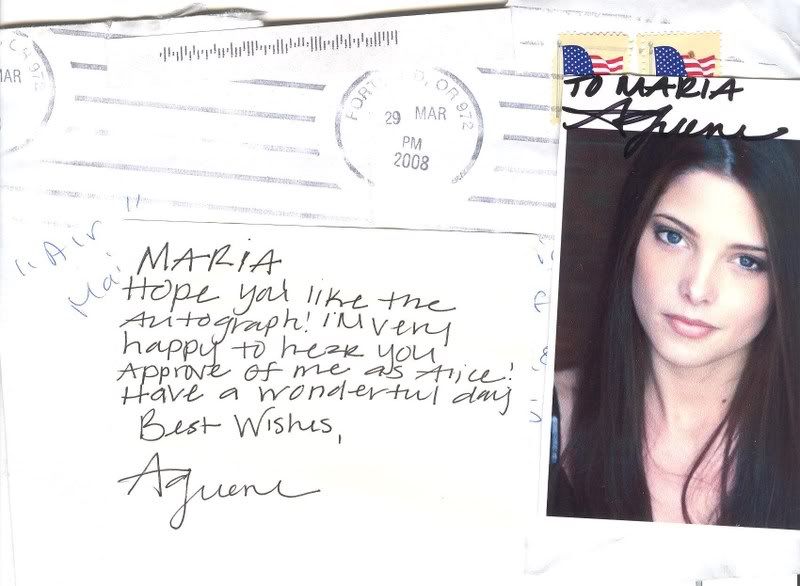 MAR
972
PORTLAND, OR 972
29 MAR
PM
2008
TO MARIA
"Air
Mai
MARIA
Hope you like the
Autograph! I'm very
happy to hear you
Approve of me as Alice!
Have a wonderful day
Best Wishes,